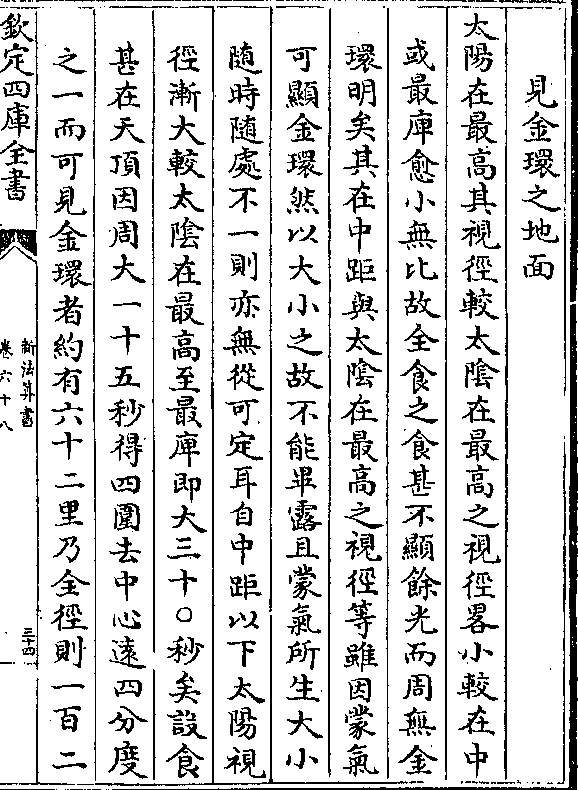 見金環之地面
太陽在最高其視徑較太陰在最高之視徑畧小較在中
或最庳愈小無比故全食之食甚不顯餘光而周無金
環明矣其在中距與太陰在最高之視徑等雖因蒙氣
可顯金環然以大小之故不能畢露且蒙氣所生大小
隨時隨處不一則亦無從可定耳自中距以下太陽視
徑漸大較太陰在最高至最庳即大三十〇秒矣設食
甚在天頂因周大一十五秒得四圍去中心遠四分度
之一而可見金環者約有六十二里乃全徑則一百二
欽定四庫全書
新法算書
卷六十八
三十四